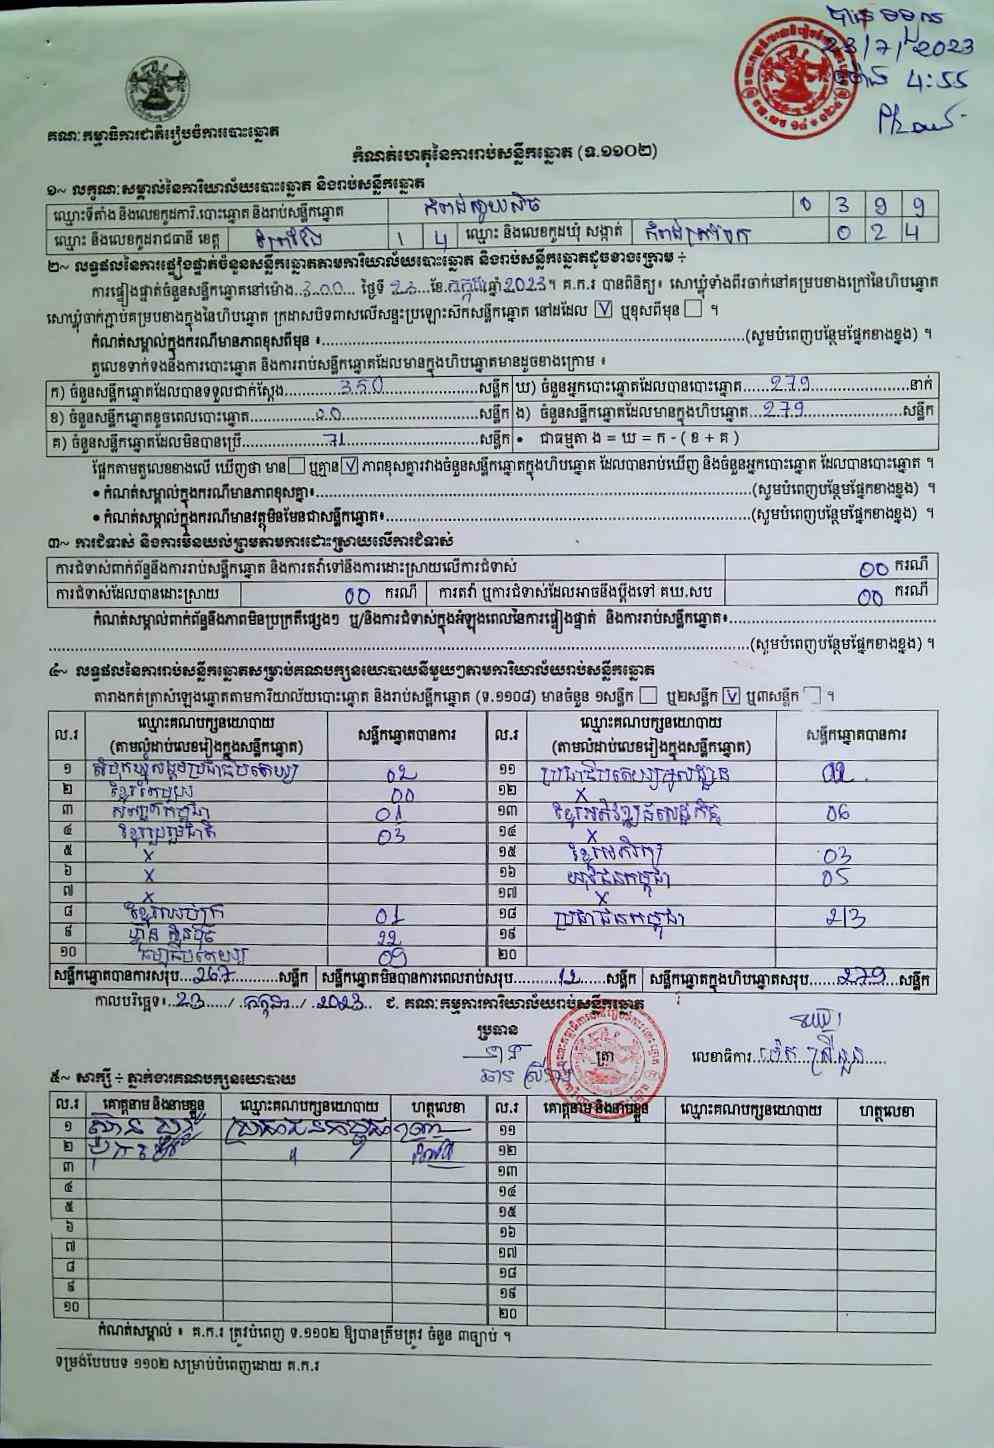 បានទទួល
23/7/2023
ម៉ោង 4:55
គណៈកម្មាធិការជាតិរៀបចំការបោះឆ្នោត
កំណត់ហេតុនៃការរាប់សន្លឹកឆ្នោត (ទ.១១០២)
១~ លក្ខណៈសម្គាល់នៃការិយាល័យបោះឆ្នោត និងរាប់សន្លឹកឆ្នោត
ឈ្មោះទីតាំង និងលេខកូដការិ.បោះឆ្នោត និងរាប់សន្លឹកឆ្នោត 0 3 9 9
ឈ្មោះ និងលេខកូដរាជធានី ខេត្ត ព្រៃវែង 1 4 ឈ្មោះ និងលេខកូដឃុំ សង្កាត់ 0 2 4
២~ លទ្ធផលនៃការផ្ទៀងផ្ទាត់ចំនួនសន្លឹកឆ្នោតតាមការិយាល័យបោះឆ្នោត និងរាប់សន្លឹកឆ្នោតដូចខាងក្រោម ÷
ការផ្ទៀងផ្ទាត់ចំនួនសន្លឹកឆ្នោតនៅម៉ោង 3:00 ថ្ងៃទី 23 ខែ កក្កដា ឆ្នាំ 2023។ គ.ក.រ បានពិនិត្យ៖ សោឃ្លុំទាំងពីរចាក់នៅគម្របខាងក្រៅនៃហិបឆ្នោត
សោឃ្លុំចាក់ភ្ជាប់គម្របខាងក្នុងនៃហិបឆ្នោត ក្រដាសបិទពាសលើសន្ទះប្រឡោះស៊កសន្លឹកឆ្នោត នៅដដែល V ឬខុសពីមុន ។
កំណត់សម្គាល់ក្នុងករណីមានភាពខុសពីមុន ៖ (សូមបំពេញបន្ថែមផ្នែកខាងខ្នង) ។
តួលេខទាក់ទងនឹងការបោះឆ្នោត និងការរាប់សន្លឹកឆ្នោតដែលមានក្នុងហិបឆ្នោតមានដូចខាងក្រោម ៖
ក) ចំនួនសន្លឹកឆ្នោតដែលបានទទួលជាក់ស្តែង 350 សន្លឹក ឃ) ចំនួនអ្នកបោះឆ្នោតដែលបានបោះឆ្នោត 279 នាក់
ខ) ចំនួនសន្លឹកឆ្នោតខូចពេលបោះឆ្នោត 00 សន្លឹក ង) ចំនួនសន្លឹកឆ្នោតដែលមានក្នុងហិបឆ្នោត 279 សន្លឹក
គ) ចំនួនសន្លឹកឆ្នោតដែលមិនបានប្រើ 71 សន្លឹក • ជាធម្មតា ង = ឃ = ក - ( ខ + គ )
ផ្អែកតាមតួលេខខាងលើ ឃើញថា មាន ឬគ្មាន V ភាពខុសគ្នារវាងចំនួនសន្លឹកឆ្នោតក្នុងហិបឆ្នោត ដែលបានរាប់ឃើញ និងចំនួនអ្នកបោះឆ្នោត ដែលបានបោះឆ្នោត ។
• កំណត់សម្គាល់ក្នុងករណីមានភាពខុសគ្នា៖ (សូមបំពេញបន្ថែមផ្នែកខាងខ្នង) ។
• កំណត់សម្គាល់ក្នុងករណីមានវត្ថុមិនមែនជាសន្លឹកឆ្នោត៖ (សូមបំពេញបន្ថែមផ្នែកខាងខ្នង) ។
៣~ ការជំទាស់ និងការមិនយល់ព្រមតាមការដោះស្រាយលើការជំទាស់
ការជំទាស់ពាក់ព័ន្ធនឹងការរាប់សន្លឹកឆ្នោត និងការតវ៉ាទៅនឹងការដោះស្រាយលើការជំទាស់ 00 ករណី
ការជំទាស់ដែលបានដោះស្រាយ 00 ករណី ការតវ៉ា ឬការជំទាស់ដែលអាចនឹងប្តឹងទៅ គឃ.សប 00 ករណី
កំណត់សម្គាល់ពាក់ព័ន្ធនឹងភាពមិនប្រក្រតីផ្សេងៗ ឬ/និងការជំទាស់ក្នុងអំឡុងពេលនៃការផ្ទៀងផ្ទាត់ និងការរាប់សន្លឹកឆ្នោត៖
(សូមបំពេញបន្ថែមផ្នែកខាងខ្នង) ។
៤~ លទ្ធផលនៃការរាប់សន្លឹកឆ្នោតសម្រាប់គណបក្សនយោបាយនីមួយៗតាមការិយាល័យរាប់សន្លឹកឆ្នោត
តារាងកត់ត្រាសំឡេងឆ្នោតតាមការិយាល័យបោះឆ្នោត និងរាប់សន្លឹកឆ្នោត (ទ.១១០៨) មានចំនួន ១សន្លឹក ឬ២សន្លឹក V ឬ៣សន្លឹក ។
ល.រ ឈ្មោះគណបក្សនយោបាយ (តាមលំដាប់លេខរៀងក្នុងសន្លឹកឆ្នោត) សន្លឹកឆ្នោតបានការ ល.រ ឈ្មោះគណបក្សនយោបាយ (តាមលំដាប់លេខរៀងក្នុងសន្លឹកឆ្នោត) សន្លឹកឆ្នោតបានការ
១ សំបុកឃ្មុំសង្គមប្រជាធិបតេយ្យ 02 ១១ ប្រជាធិបតេយ្យមូលដ្ឋាន 02
២ ខ្មែរតែមួយ 00 ១២ X
៣ 01 ១៣ ខ្មែរអភិវឌ្ឍន៍សេដ្ឋកិច្ច 06
៤ ខ្មែររួបរួមជាតិ 03 ១៤ X
៥ X ១៥ ខ្មែរអភិរក្ស 03
៦ X ១៦ យុវជនកម្ពុជា 05
៧ X ១៧ X
៨ ខ្មែរឈប់ក្រ 01 ១៨ ប្រជាជនកម្ពុជា 213
៩ ហ្វ៊ុនស៊ិនប៉ិច 22 ១៩
១០ 09 ២០
សន្លឹកឆ្នោតបានការសរុប 267 សន្លឹក សន្លឹកឆ្នោតមិនបានការពេលរាប់សរុប 12 សន្លឹក សន្លឹកឆ្នោតក្នុងហិបឆ្នោតសរុប 279 សន្លឹក
កាលបរិច្ឆេទ៖ 23 / កក្កដា / 2023 ជ. គណៈកម្មការការិយាល័យរាប់សន្លឹកឆ្នោត
ប្រធាន ត្រា លេខាធិការ
៥~ សាក្សី ÷ ភ្នាក់ងារគណបក្សនយោបាយ
ល.រ គោត្តនាម និងនាមខ្លួន ឈ្មោះគណបក្សនយោបាយ ហត្ថលេខា ល.រ គោត្តនាម និងនាមខ្លួន ឈ្មោះគណបក្សនយោបាយ ហត្ថលេខា
១ ប្រជាជនកម្ពុជា ១១
២ " ១២
៣ ១៣
៤ ១៤
៥ ១៥
៦ ១៦
៧ ១៧
៨ ១៨
៩ ១៩
១០ ២០
កំណត់សម្គាល់ ៖ គ.ក.រ ត្រូវបំពេញ ទ.១១០២ ឱ្យបានត្រឹមត្រូវ ចំនួន ៣ច្បាប់ ។
ទម្រង់បែបបទ ១១០២ សម្រាប់បំពេញដោយ គ.ក.រ